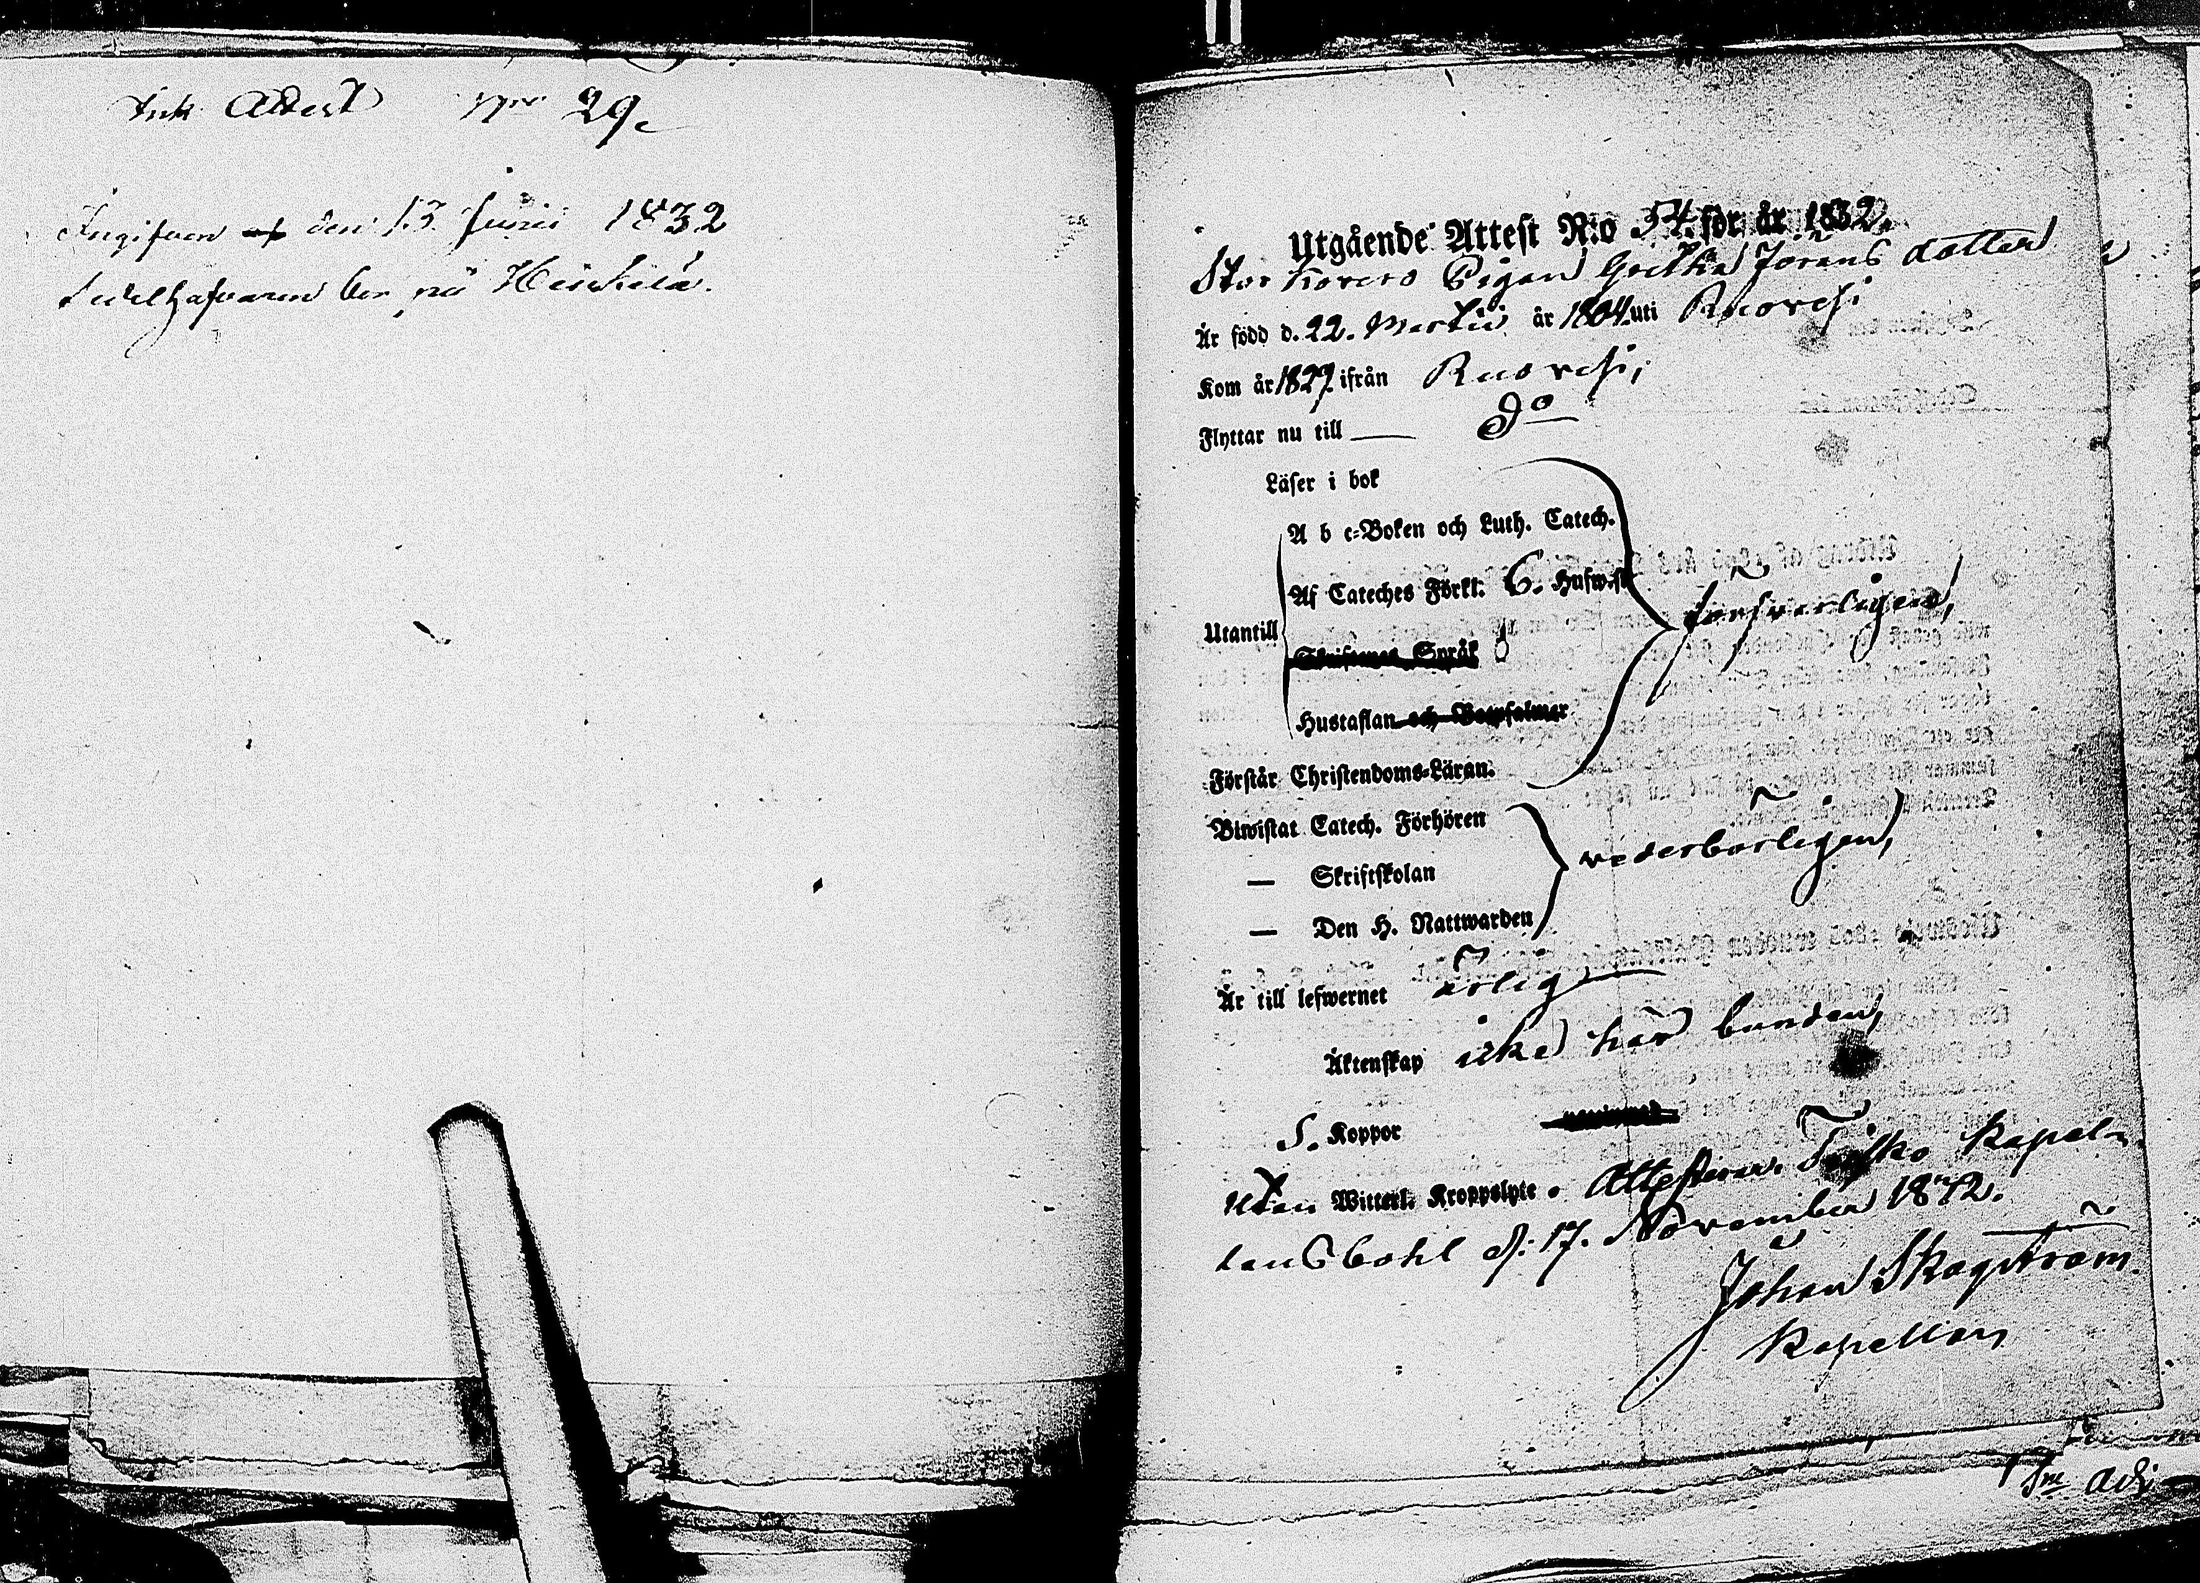 Ink Attest Nro 29.
Ingifven den 13 Junii 1832
Sedelhafvaren bor på Heikkilä.
Utgående Attest N:o 54. för år 1832.
Stor Korero Pigan Gretha Jörans dotter
Är född d. 22. Martii år 1804 uti Ruovesi
Kom år 1829 ifrån Ruovesi,
Flyttar nu till — do
Läser i bok
A b c-Boken och Luth. Catech.
Af Cateches Förkl. 6. Hufw.st
försvarligen,
Utantill
Skriftenes Språk
Hustaflan och Botpsalmer
Förstår Christendoms-Läran.
Biwistat Catech. Förhören
vederbörligen,
— Skriftskolan
— Den H. Nattwarden
Är till lefwernet ärlig
Äktenskap icke här bunden,
S. Koppor
utan Witterl. Kroppslyte. Attesterar. Kapel-
lansbohl d: 17. November
Johan Skogström
Kapellan